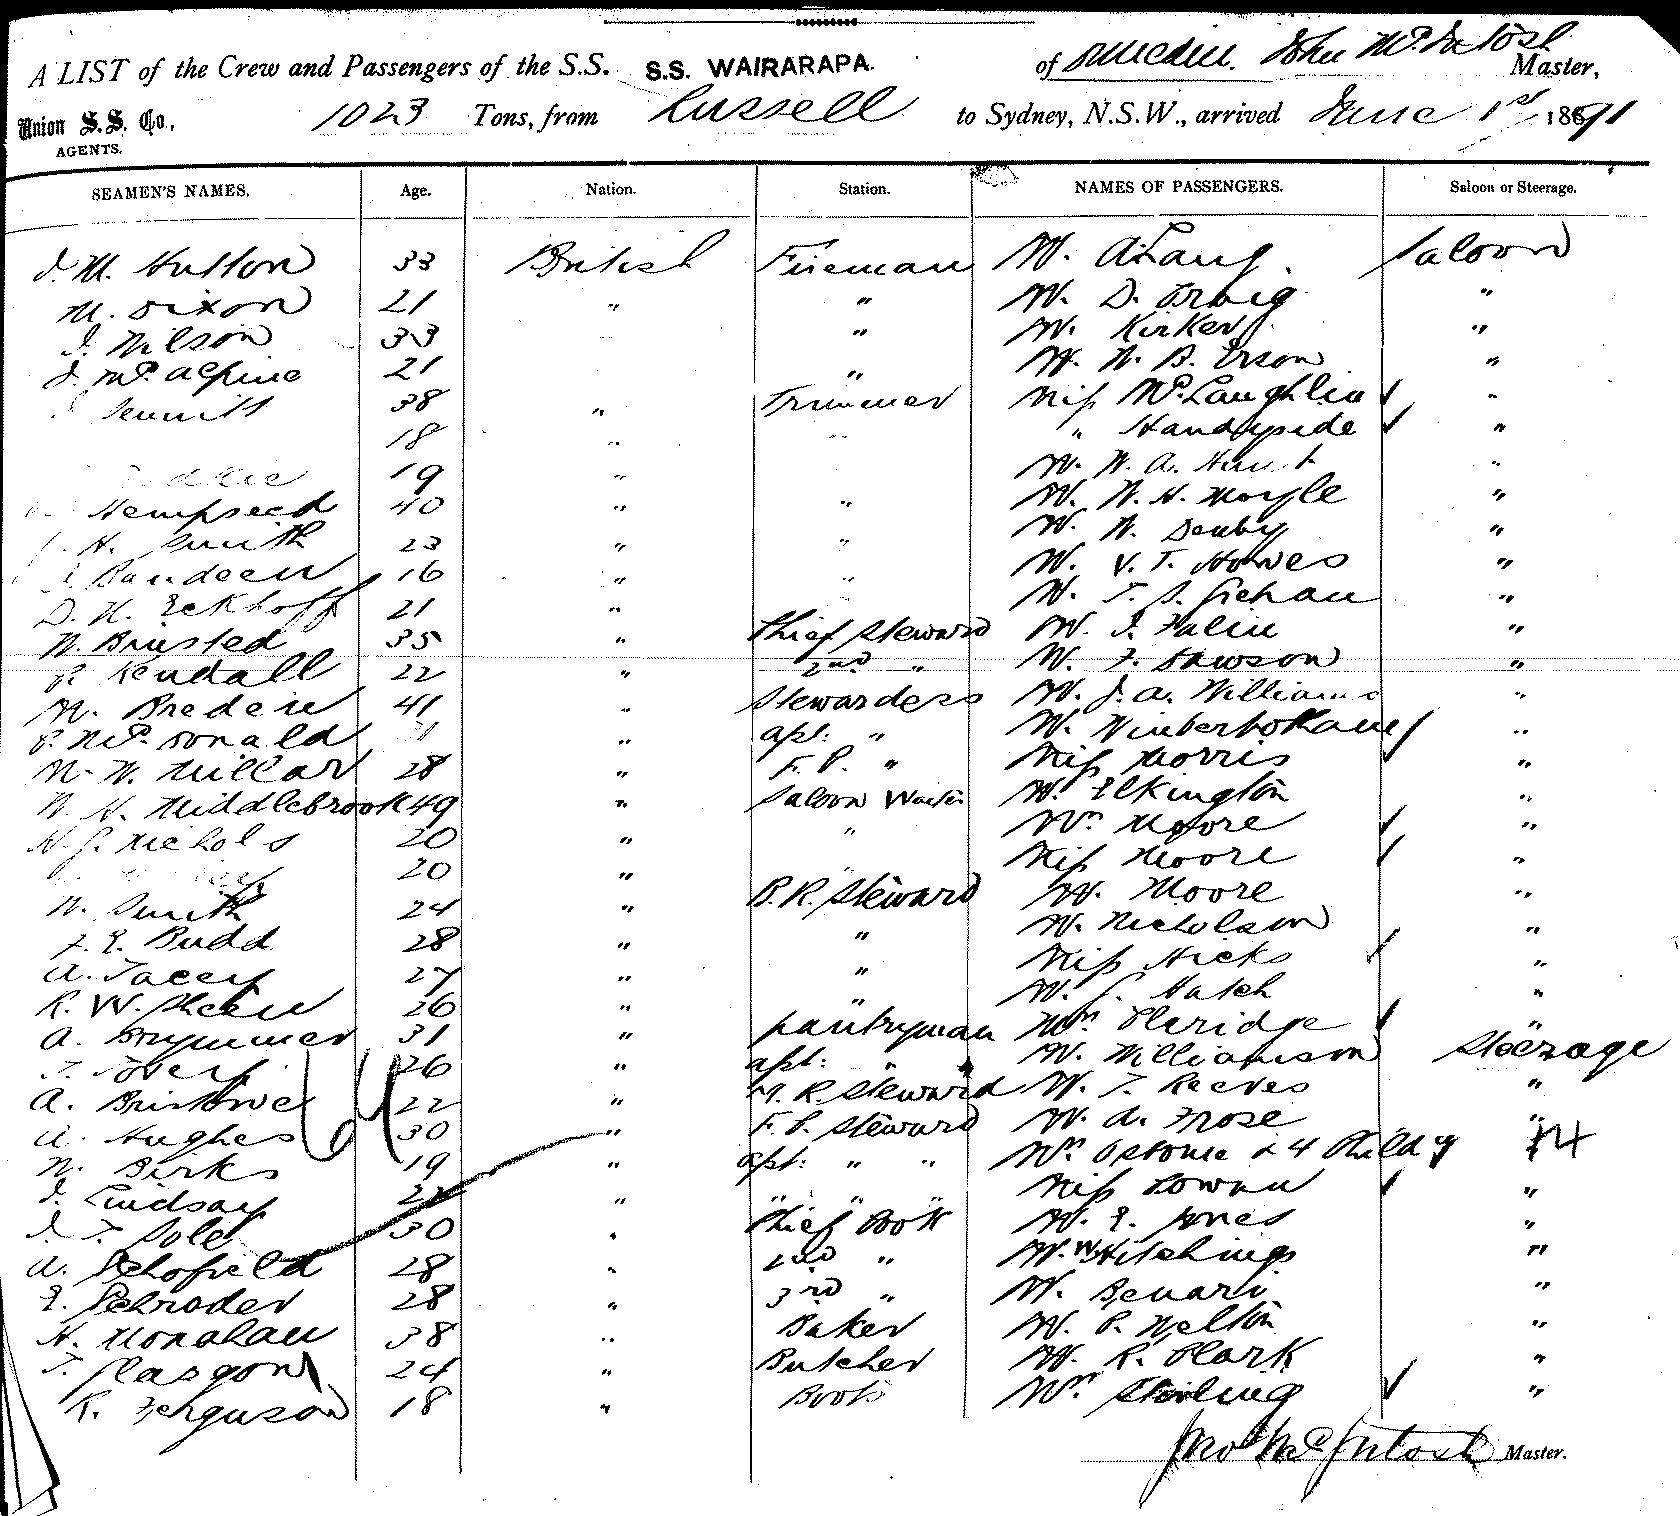 A LIST of the Crew and Passengers of the S.S. S.S. WAIRARAPA. of Dunedin. John McIntosh Master,
Union S.S. Co., AGENTS. 1023 Tons, from Russell to Sydney, N.S.W., arrived June 1st 1891
SEAMEN'S NAMES. Age. Nation. Station. NAMES OF PASSENGERS. Saloon or Steerage.
J. M. Hutton 33 British Fireman Mr. A Lang Saloon
M. Dixon 21 " " Mr. D. Craig "
J. Wilson 33 " Mr. Kirker "
J. McAlpine 21 " Mr. W. B. Erson "
38 " Trimmer Miss McLaughlin "
18 " " " Handyside "
19 " Mr. W. A. "
Hempseed 40 " " Mr. W. H. Moyle "
H. Smith 23 " " Mr. W. Denby "
Baudeen 16 " " Mr. V. T. Howes "
D. H. Eckhoff 21 " " Mr. T. S. "
W. Brusted 35 " Chief Steward Mr. J. "
P. Kendall 22 " 2nd " Mr. F. Dawson "
M. Bredein 41 " Stewardess Mr. J. A. Williams "
P. McDonald " asst: " Mr. Winterbotham "
W. W. Millar 28 " F. C. " Miss Morris "
W. H. Middlebrook 49 " Saloon Waiter Mr. Elkington "
H. G. Nichols 20 " " Mrs Moore "
20 " " Miss Moore "
W. Smith 24 " B. R. Steward Mr. Moore "
F. E. Budd 28 " " Mr. Nicholson "
A. Tacey 27 " " Miss Hicks "
R. W. Sheen 26 " " Mr. G. Hatch "
A. Brymmer 31 " pantryman Mrs. Claridge "
T. 26 " asst: " Mr. Williamson Steerage
A. Bristowe 22 " M. R. Steward Mr. T. Reeves "
A. Hughes 30 " F. C. Steward Mr. A. Frose "
W. Birks 19 " asst: " " Mrs Osborne & 4 Child 4
J. Lindsay 22 " " " " Miss Cowan "
J. T. Sole 30 " Chief Cook Mr. E. Jones "
A. Schofield 28 " 2nd " Mr. W Hitchings "
E. Schroder 28 " 3rd " Mr. Benari "
H. Monahan 38 " Baker Mr. C. Welton "
T. Glasgow 24 " Butcher Mr. R. Clark "
R. Ferguson 18 " Boots Mrs Stirling "
Jno McIntosh Master.